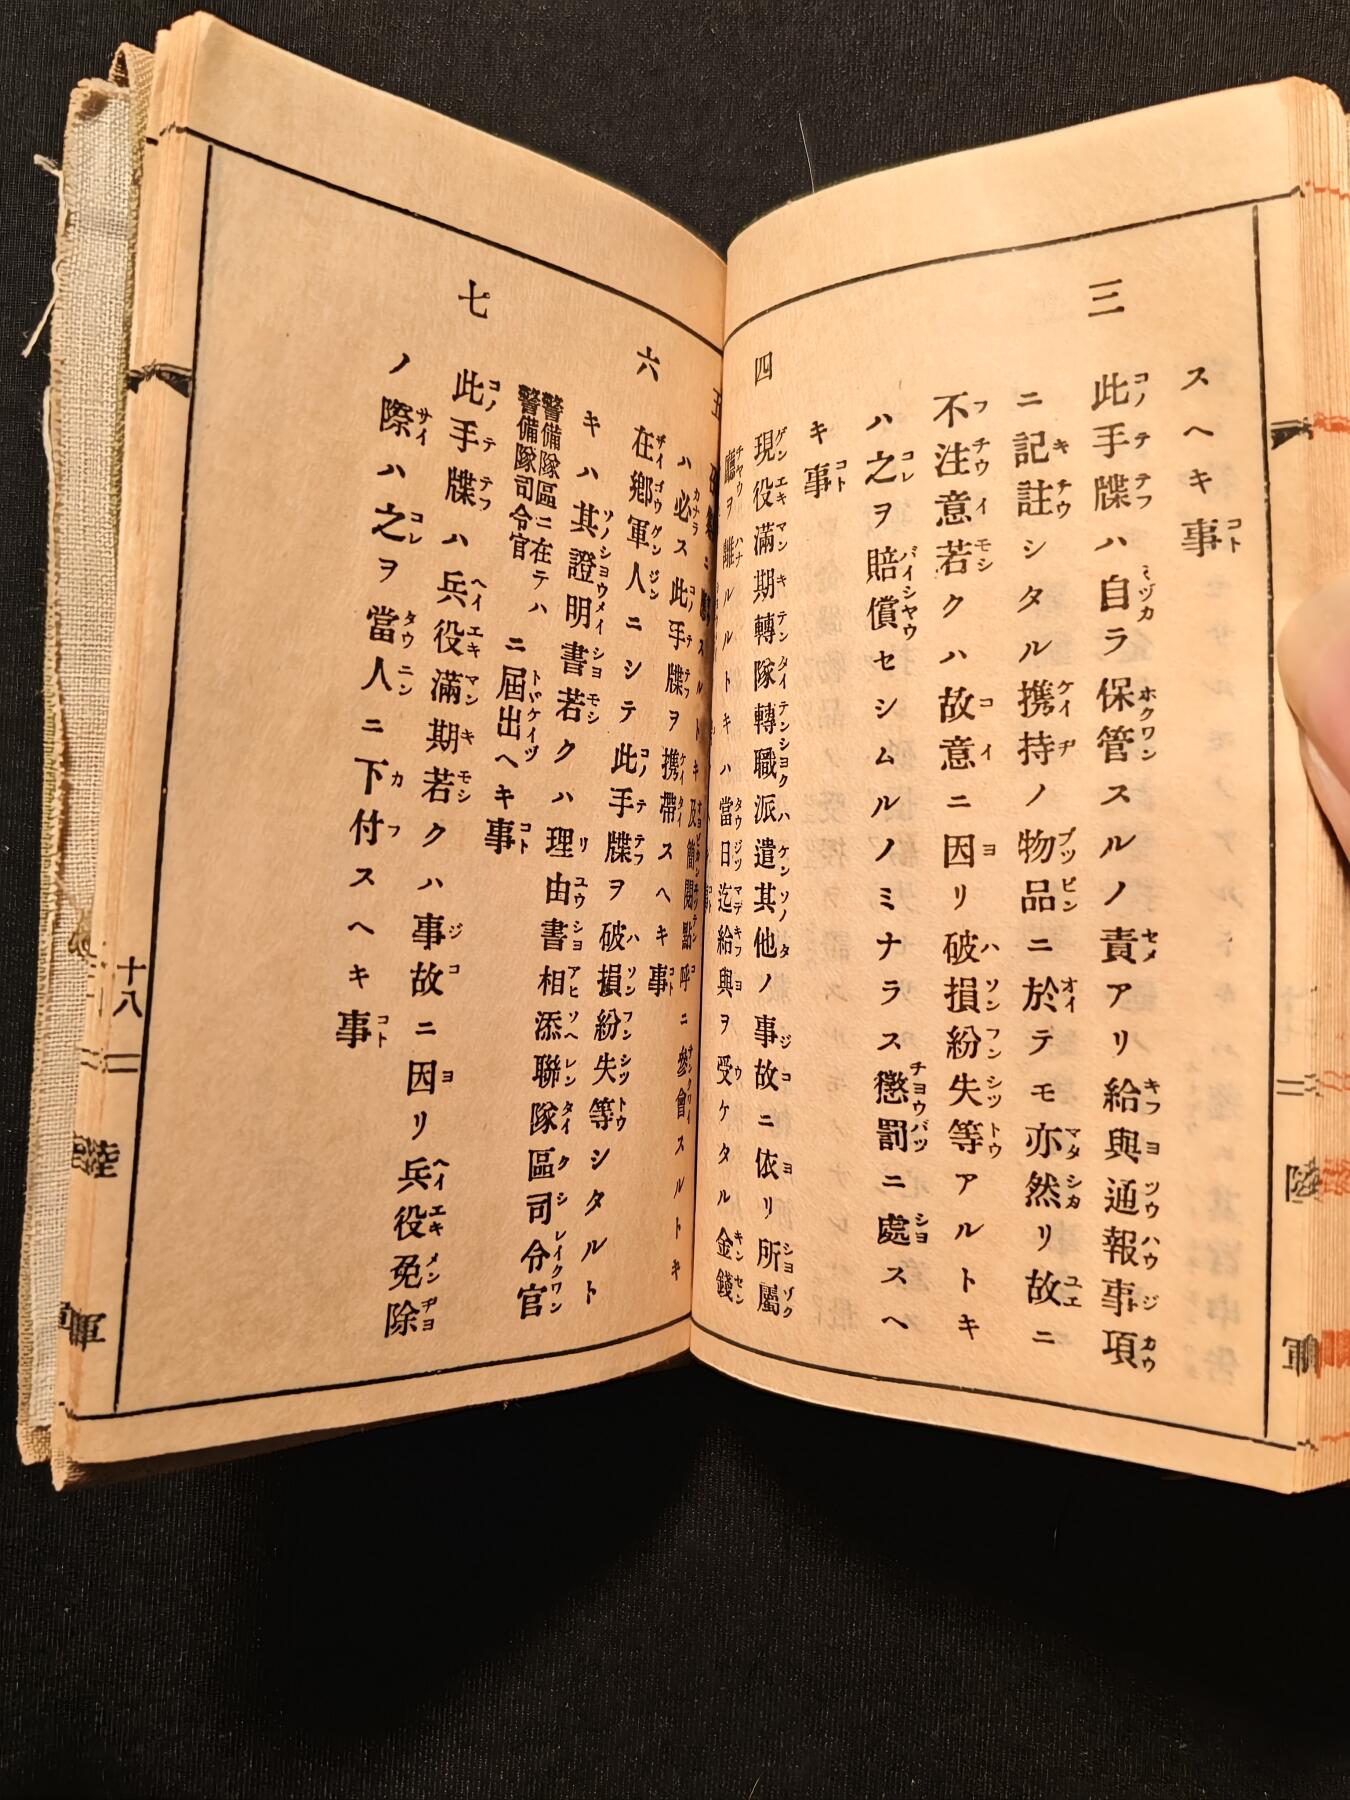 スヘキ事
三 此手牒ハ自ラ保管スルノ責アリ給與通報事項
ニ記註シタル携持ノ物品ニ於テモ亦然リ故ニ
不注意若クハ故意ニ因リ破損紛失等アルトキ
ハ之ヲ賠償セシムルノミナラス懲罰ニ處スヘ
キ事
四 現役滿期轉隊轉職派遣其他ノ事故ニ依リ所屬
廳ヲ離ルルトキハ當日迄給與ヲ受ケタル金錢
五
ニ應スルトキ及簡閱點呼ニ參會スルトキ
ハ必ス此手牒ヲ携帶スヘキ事
六 在鄉軍人ニシテ此手牒ヲ破損紛失等シタルト
キハ其證明書若クハ理由書相添聯隊區司令官
警備隊區ニ在テハ
警備隊司令官
ニ屆出ヘキ事
七 此手牒ハ兵役滿期若クハ事故ニ因リ兵役免除
ノ際ハ之ヲ當人ニ下付スヘキ事
十八
陸
軍
陸
軍